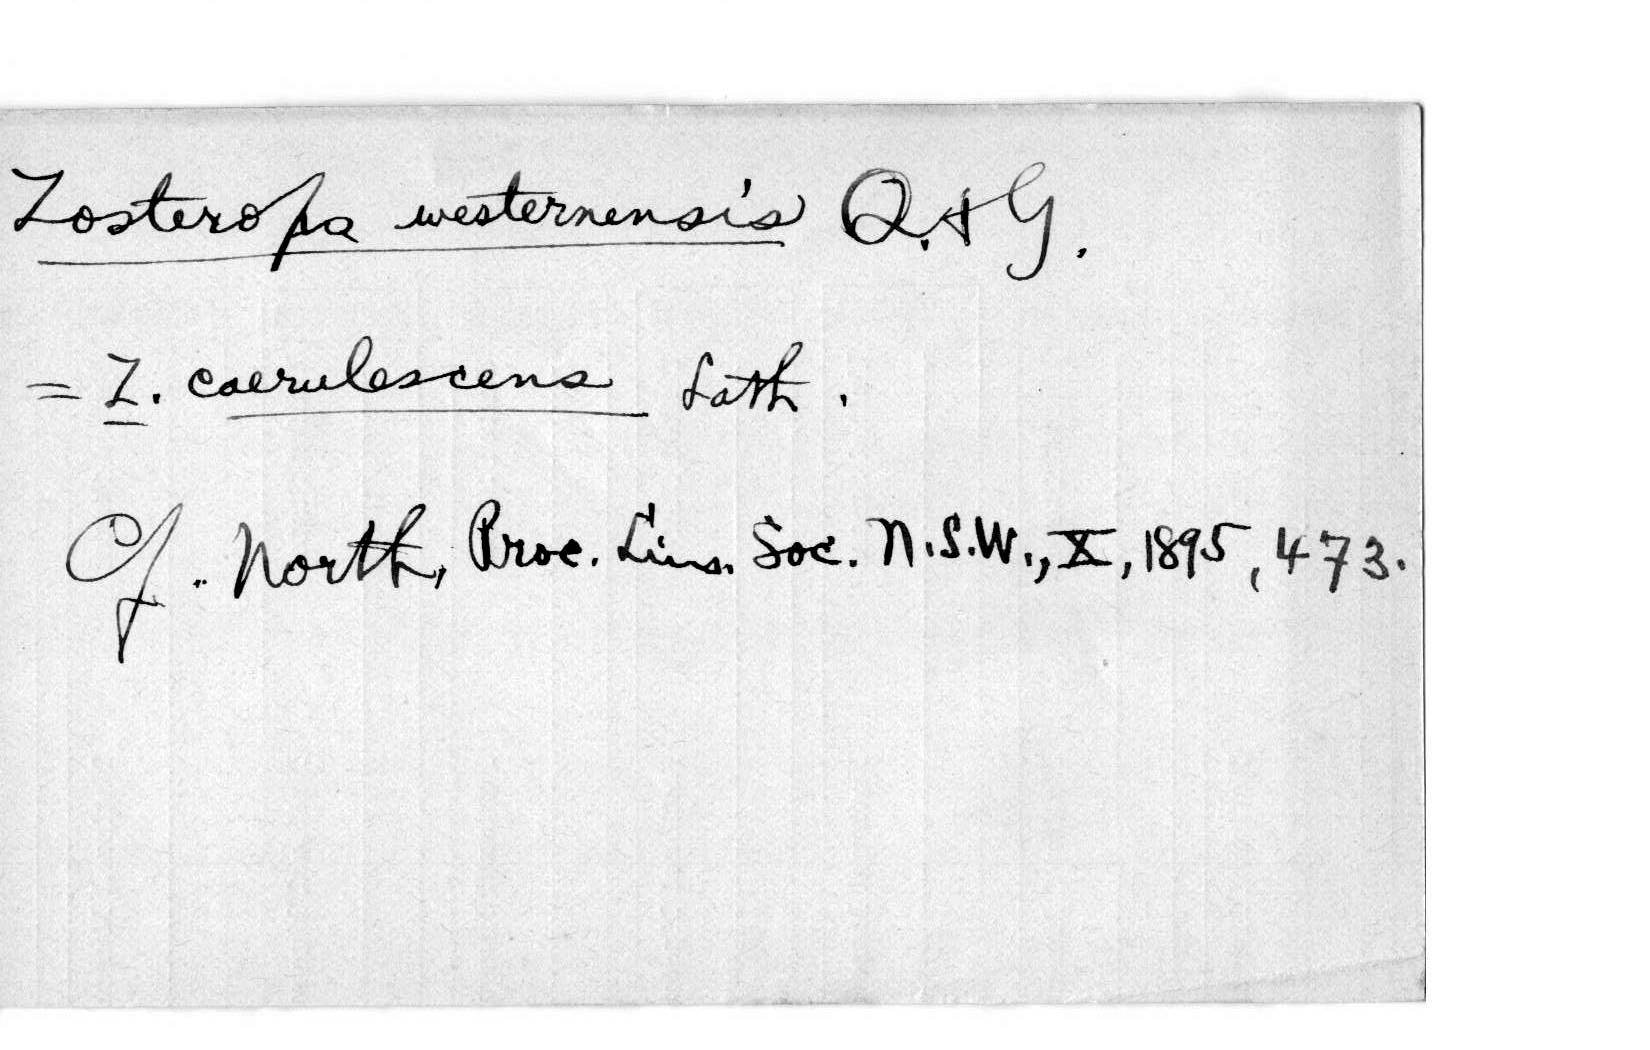 Zosterops westernensis Q. & G.
= Z. caerulescens Lath.
Cf. North, Proc. Linn. Soc. N.S.W., X, 1895, 473.